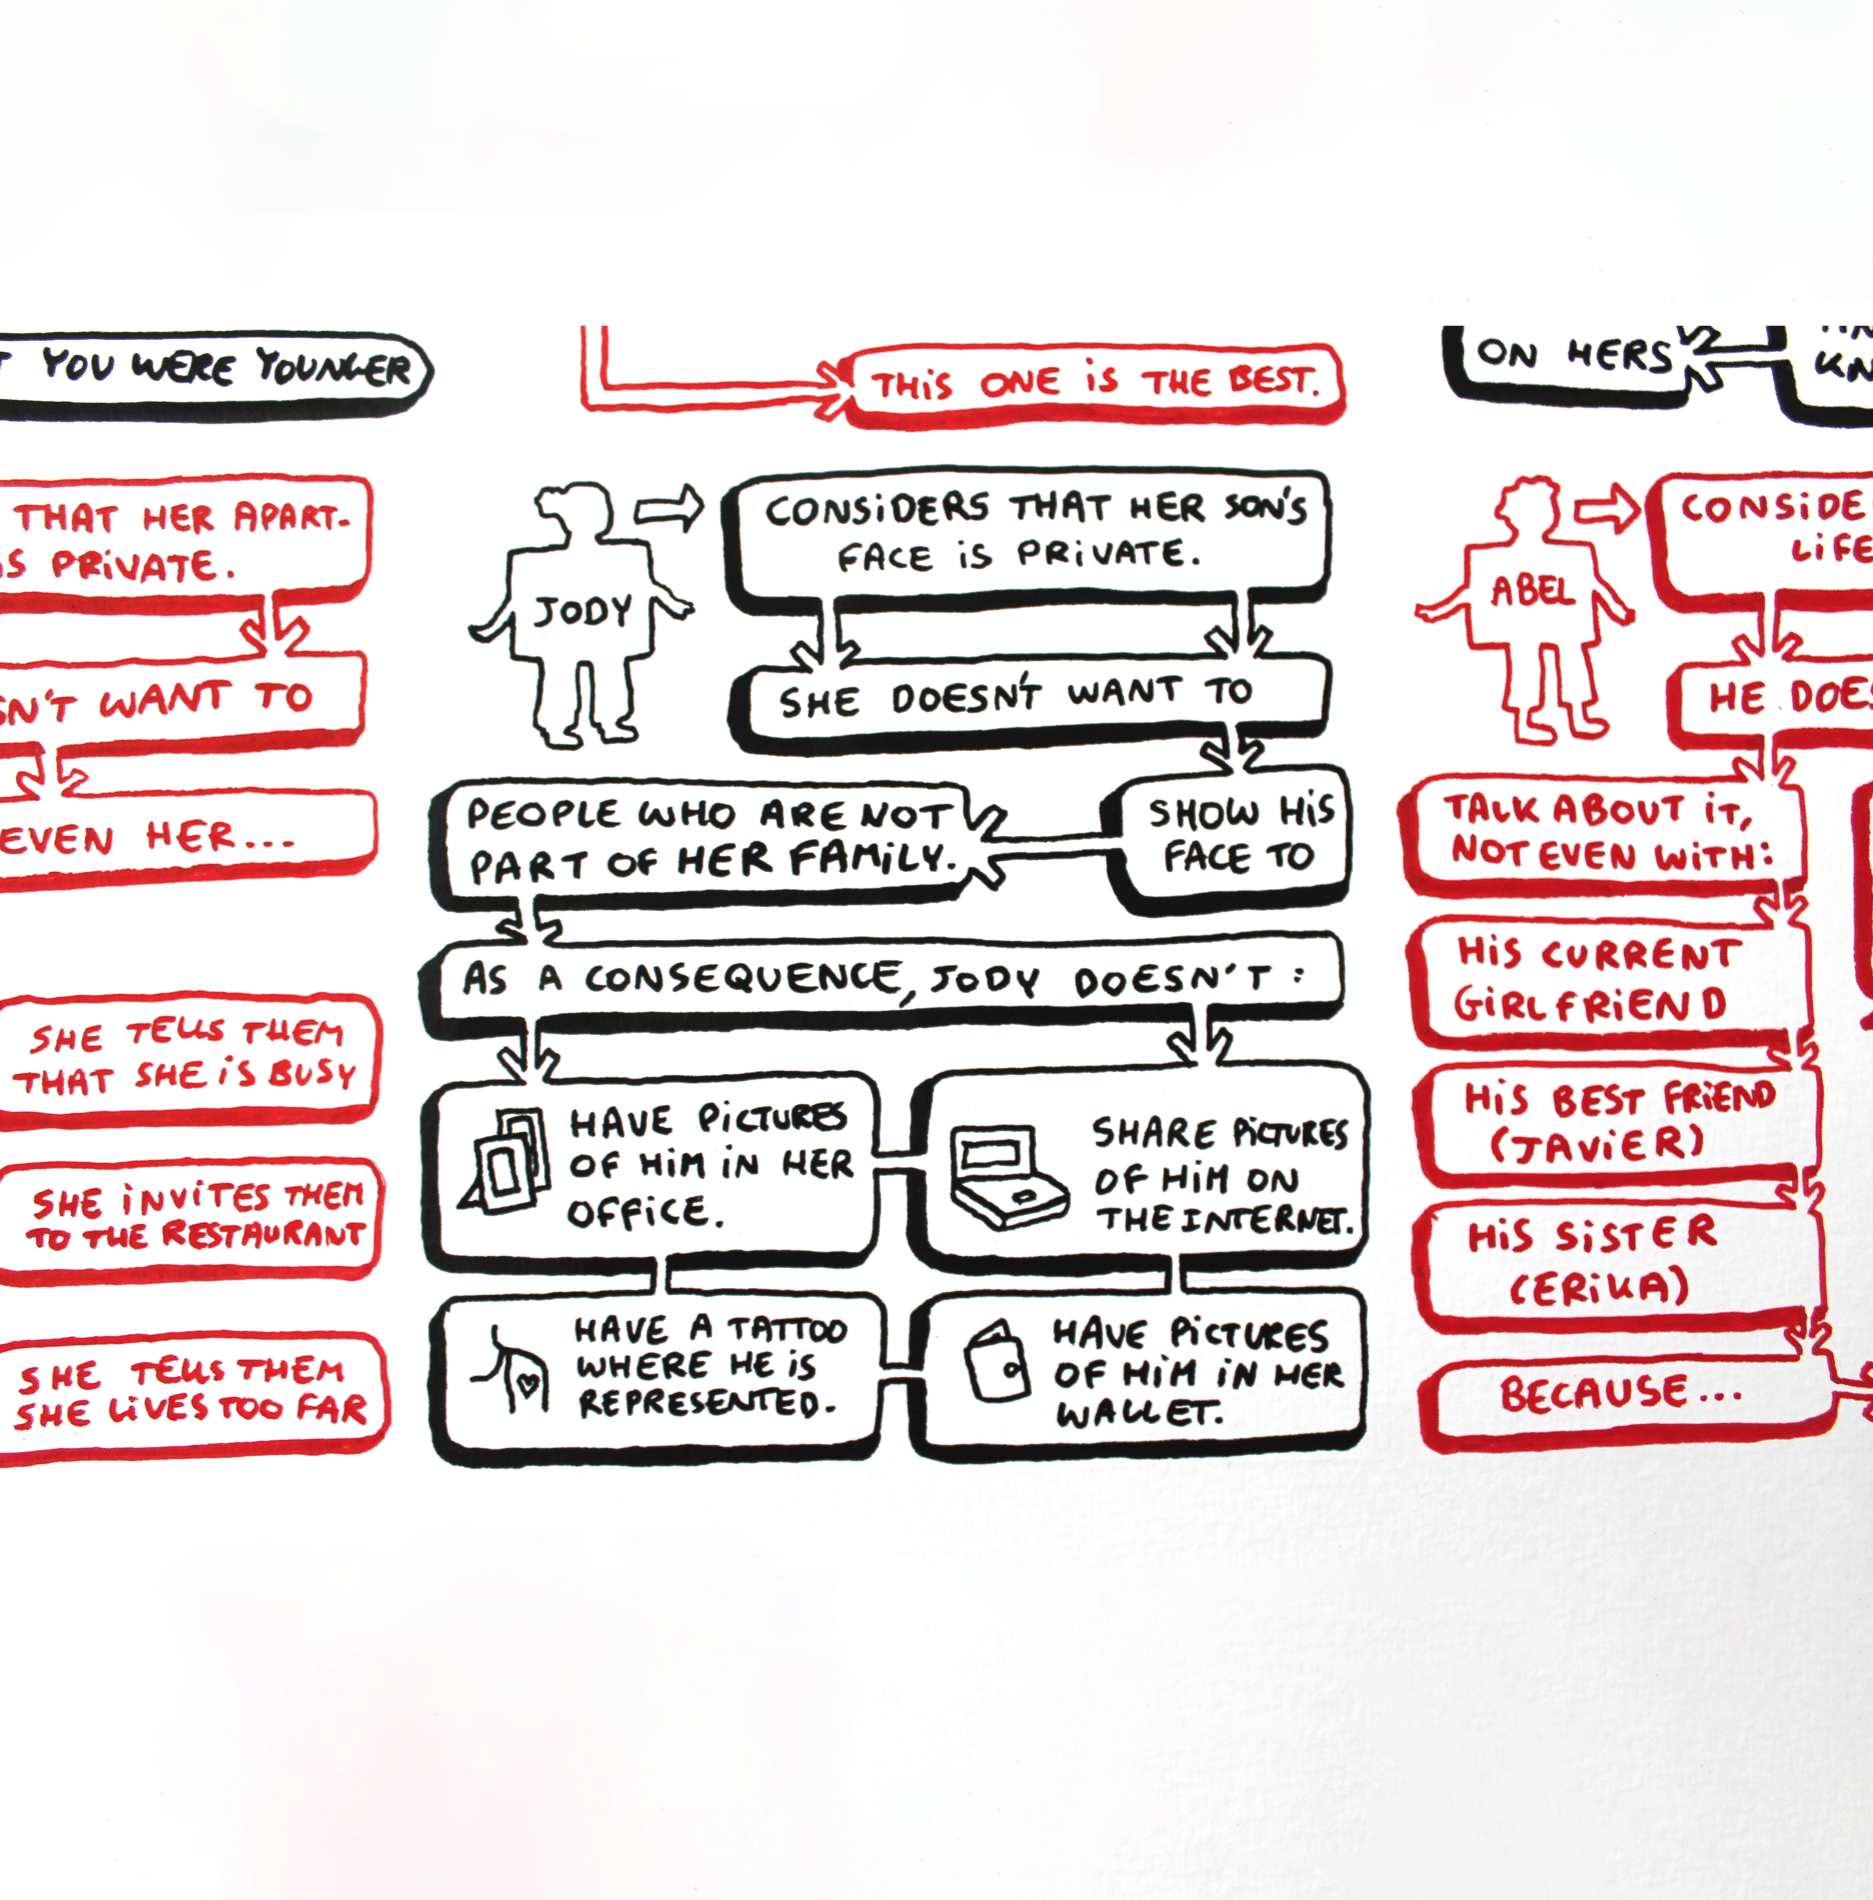 YOU WERE YOUNGER
THIS ONE IS THE BEST.
ON HERS
THAT HER APART-
IS PRIVATE.
WANT TO
EVEN HER...
SHE TELLS THEM
THAT SHE IS BUSY
SHE INVITES THEM
TO THE RESTAURANT
SHE TELLS THEM
SHE LIVES TOO FAR
JODY
CONSIDERS THAT HER SON'S
FACE IS PRIVATE.
SHE DOESN'T WANT TO
SHOW HIS
FACE TO
PEOPLE WHO ARE NOT
PART OF HER FAMILY.
AS A CONSEQUENCE, JODY DOESN'T:
HAVE PICTURES
OF HIM IN HER
OFFICE.
SHARE PICTURES
OF HIM ON
THE INTERNET.
HAVE A TATTOO
WHERE HE IS
REPRESENTED.
HAVE PICTURES
OF HIM IN HER
WALLET.
ABEL
HE
TALK ABOUT IT,
NOT EVEN WITH:
HIS CURRENT
GIRLFRIEND
HIS BEST FRIEND
(JAVIER)
HIS SISTER
(ERIKA)
BECAUSE...